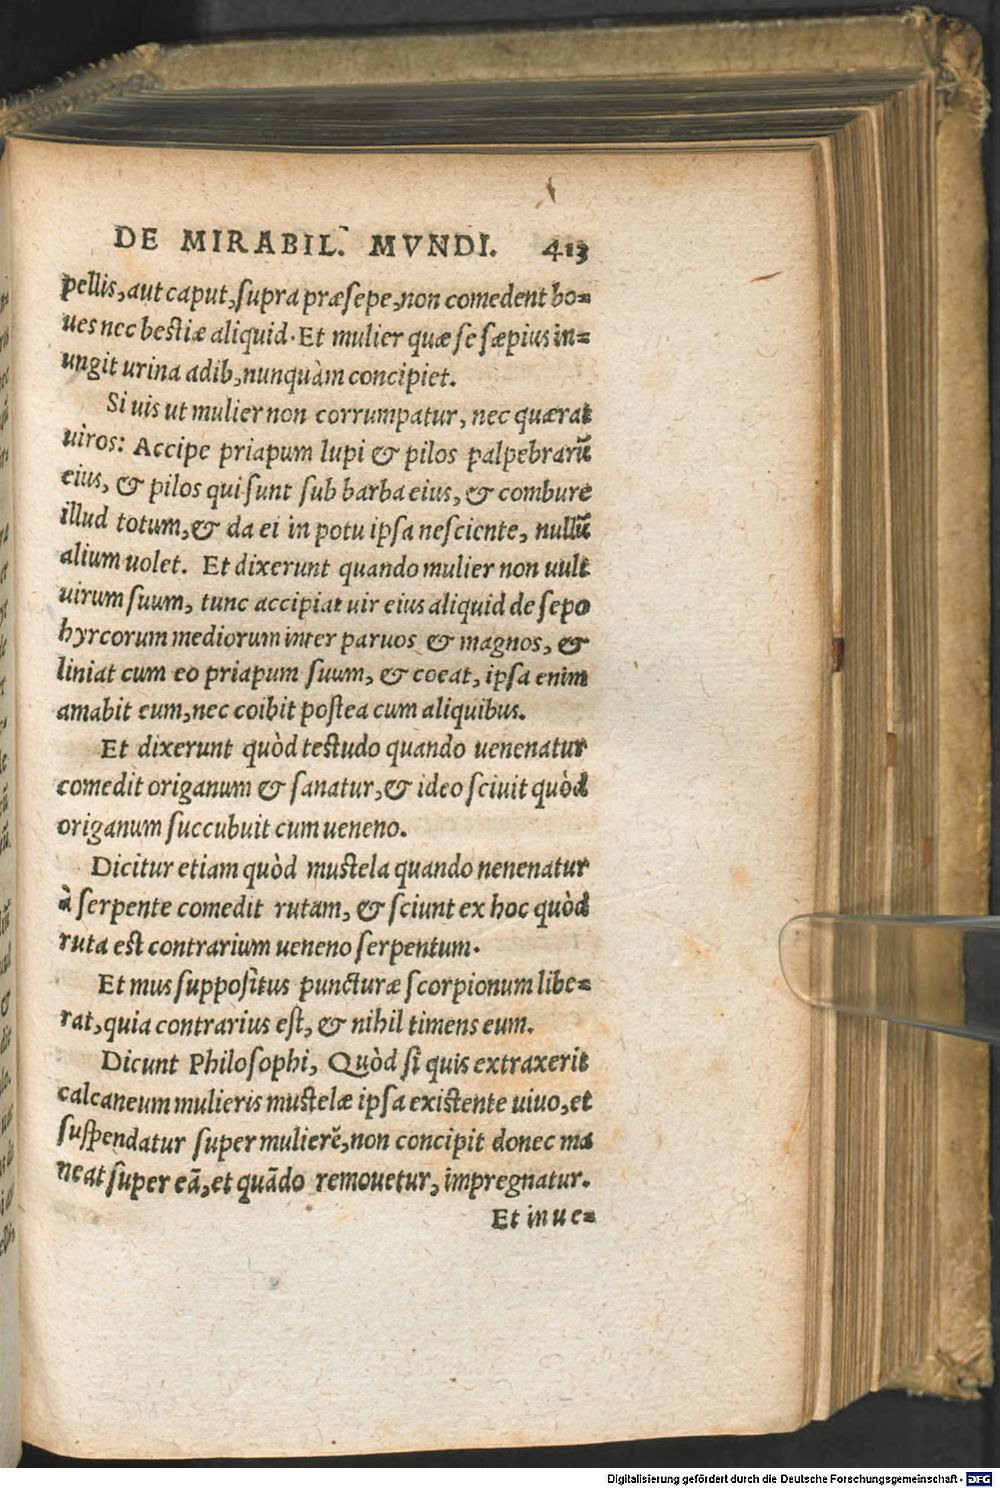 DE MIRABIL. MVNDI. 413
pellis, aut caput, supra præsepe, non comedent bo=
ues nec bestiæ aliquid. Et mulier quæ se sæpius in=
ungit urina adib, nunquàm concipiet.
Si uis ut mulier non corrumpatur, nec quærat
uiros: Accipe priapum lupi & pilos palpebrarũ
eius, & pilos qui sunt sub barba eius, & combure
illud totum, & da ei in potu ipsa nesciente, nullũ
alium uolet. Et dixerunt quando mulier non uult
uirum suum, tunc accipiat uir eius aliquid de sepo
hyrcorum mediorum inter paruos & magnos, &
liniat cum eo priapum suum, & coeat, ipsa enim
amabit eum, nec coibit postea cum aliquibus.
Et dixerunt quòd testudo quando uenenatur
comedit origanum & sanatur, & ideo sciuit quòd
origanum succubuit cum ueneno.
Dicitur etiam quòd mustela quando nenenatur
à serpente comedit rutam, & sciunt ex hoc quòd
ruta est contrarium ueneno serpentum.
Et mus suppositus puncturæ scorpionum libe=
rat, quia contrarius est, & nihil timens eum.
Dicunt Philosophi, Quòd si quis extraxerit
calcaneum mulieris mustelæ ipsa existente uiuo, et
suspendatur super mulierẽ, non concipit donec ma
neat super eã, et quãdo remouetur, impregnatur.
Et inue=
Digitalisierung gefördert durch die Deutsche Forschungsgemeinschaft - DFG